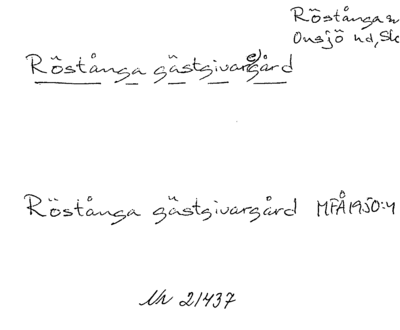 Röstånga sn
Onsjö hd, Sk
Röstånga gästgivar(e)gård
Röstånga gästgivargård MFÅ 1950:4
Nr 21437